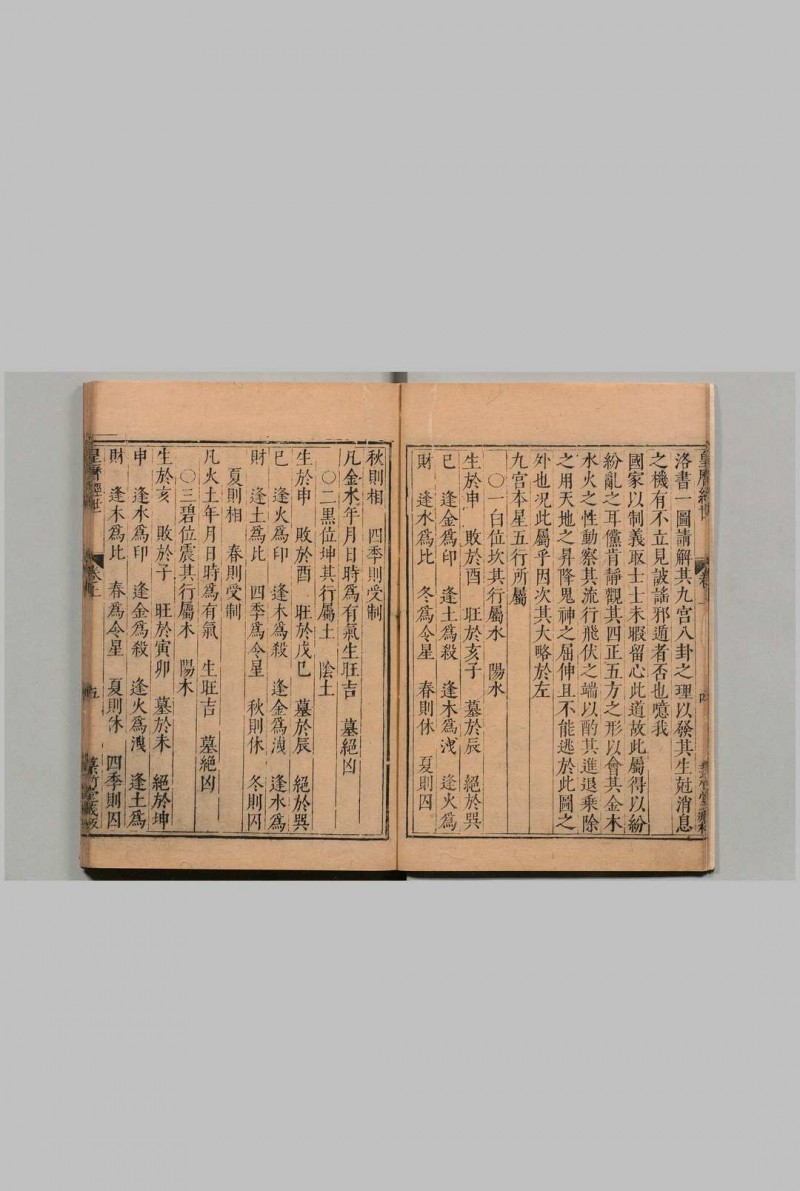 洛書一圖請解其九宮八卦之理以發其生尅消息
之機有不立見詖謠邪遁者否也噫我
國家以制義取士士未暇留心此道故此屬得以紛
紛亂之耳儻肯靜觀其四正五方之形以會其金木
水火之性動察其流行飛伏之端以酌其進退乘除
之用天地之昇降鬼神之屈伸且不能逃於此圖之
外也况此屬乎因次其大略於左
九宮本星五行所屬
〇一白位坎其行屬水　陽水
生於申　敗於酉　旺於亥子　墓於辰　絕於巽
巳　逢金爲印　逢土爲殺　逢木爲洩　逢火爲
財　逢水爲比　冬爲令星　春則休　夏則囚
秋則相　四季則受制
凡金水年月日時爲有氣生旺吉　墓絕凶
〇二黑位坤其行屬土　陰土
生於申　敗於酉　旺於戊巳　墓於辰　絕於巽
巳　逢火爲印　逢木爲殺　逢金爲洩　逢水爲
財　逢土爲比　四季爲令星　秋則休　冬則囚
夏則相　春則受制
凡火土年月日時爲有氣　生旺吉　墓絕凶
〇三碧位震其行屬木　陽木
生於亥　敗於子　旺於寅卯　墓於未　絕於坤
申　逢水爲印　逢金爲殺　逢火爲洩　逢土爲
財　逢木爲比　春爲令星　夏則休　四季則囚
五